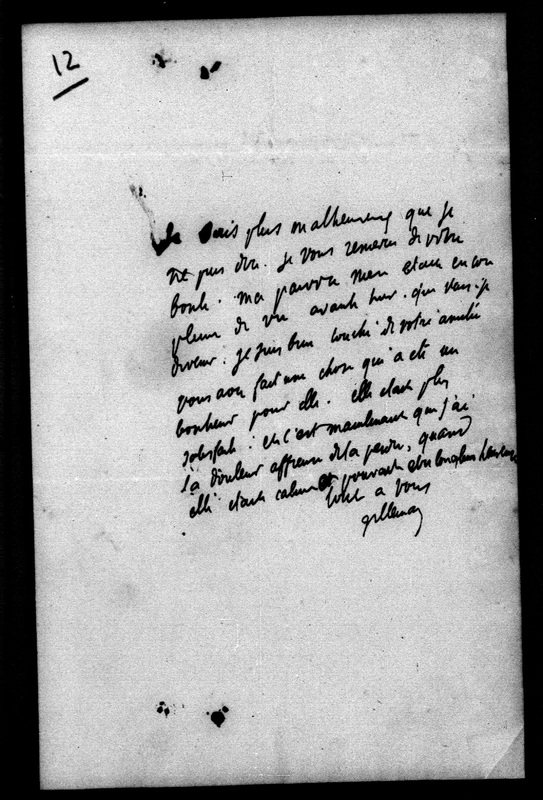 12
Je suis plus malheureux que je
ne puis dire. je vous remercie de votre
bonté. ma pauvre mère etait encore
pleine de vie avant hier. que vais-je
devenir. je suis bien touché de votre amitié
vous avez fait une chose qui a été un
bonheur pour elle. elle etait plus
satisfaite. et c'est maintenant que j'ai
la douleur affreuse de la perdre, quand
elle etait calme et pouvait etre longtems
tout a vous